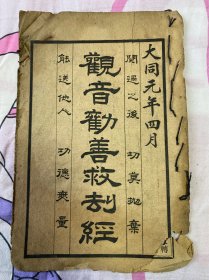 大同元年四月
閱過之後 切莫拋棄
觀音勸善救劫經
能送他人 功德爽量